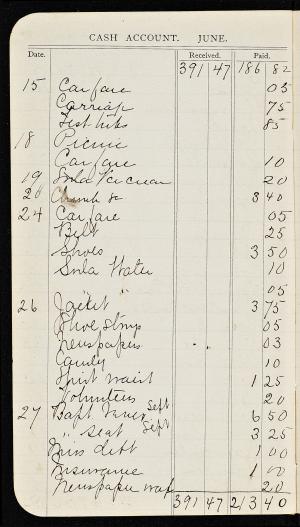 CASH ACCOUNT. JUNE.
Date. Received. Paid.
391 47 186 82
15 Carfare 05
Carriage 75
85
18 Picnic
Carfare 10
19 Soda Ice cream 20
20 Church &c 3 40
24 Carfare 05
Belt 25
Shoes 3 50
Soda Water 10
" " 05
26 Jacket 3 75
Shoe Strings 05
Newspapers 03
Candy 10
Shirt waist 1 25
Volunteers 20
27 Bapt. Sept 6 50
" Seat Sept 3 25
Miss debt 1 00
Insurance 1 00
Newspaper 20
391 47 213 40